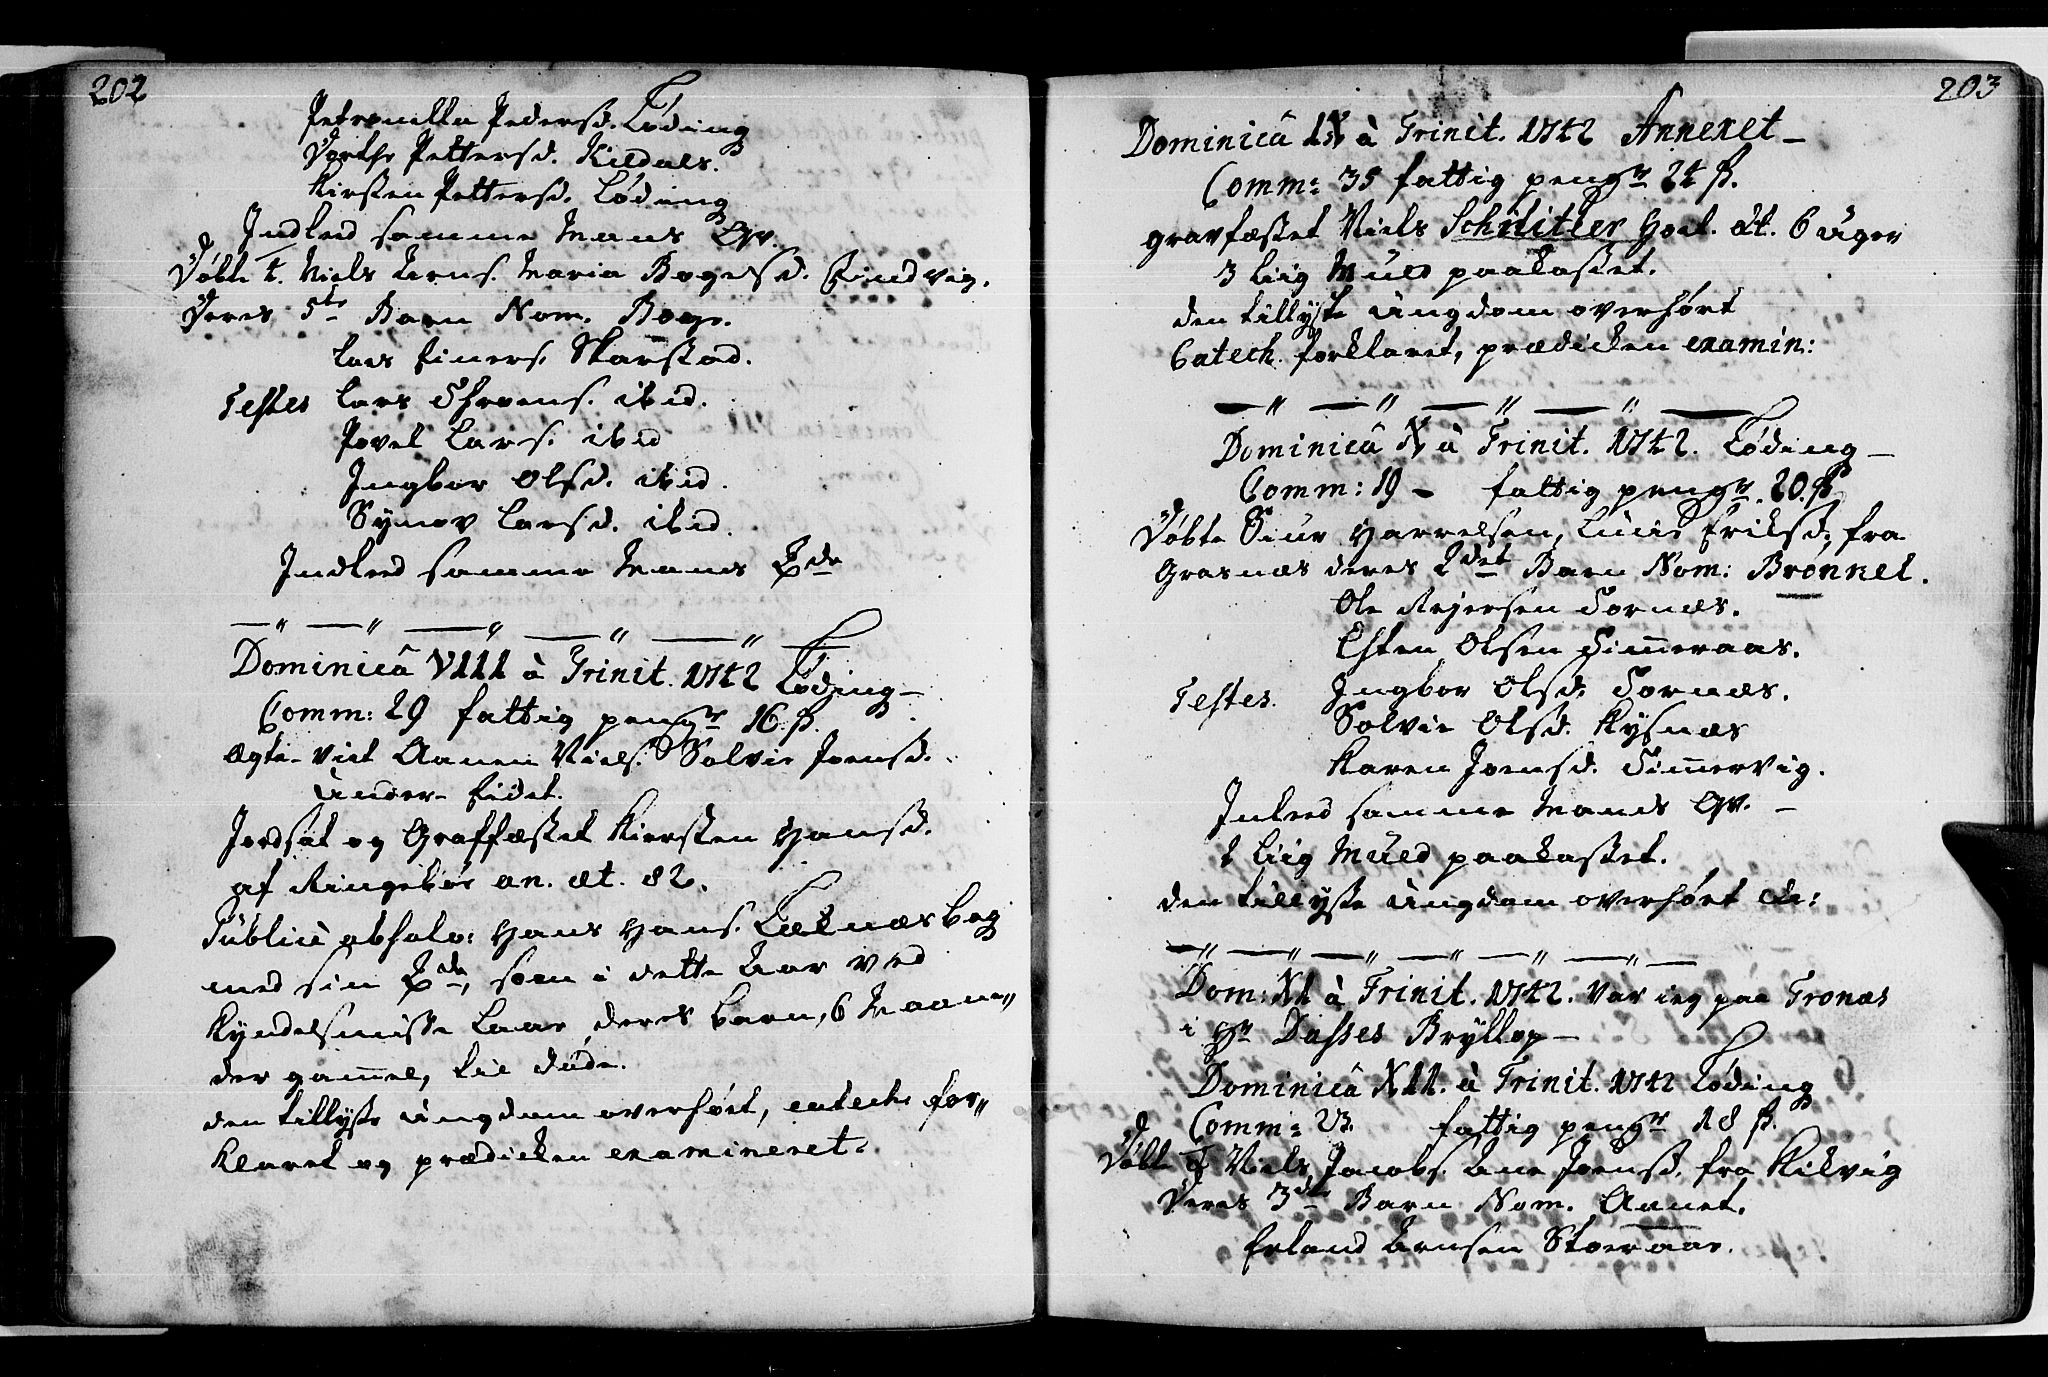 202
Petronilla Pedersd. Løding
Dorthe Pettersd. Kildals.
Kirsten Pettersd. Løding
Indled samme Mans Qv.
Døbte t. Niels Arns. Maria Bogesd. Eindvig.
Deres 5te Barn Nom. Boge.
Lars Einers. Skarstad.
Testes Lars Thoens. ibid.
Povel Lars. ibid
Ingbor Olsd. ibid.
Synov Larsd. ibid.
Indled samme Mands
Dominicâ VIII à Trinit. 1742 Løding
Comm: 29 fattig peng. 16 ß.
Ægte-viet Aanen Niels. Solvie Joensd.
Under-Eidet.
Jordsat og Graffæstet Kiersten Hansd.
af Ringebøe an. æt. 82.
Publicè absolv: Hans Hans. Leknæsbog
med sin, som i dette Aar ved
Kyndelsmisse laae deres barn, 6 Maane,,
der gammel, til døde.
den tillyste Ungdom overhørt, catech. for,,
klaret og prædicken examineret.
203
Dominicâ IX à Trinit. 1742 Annexet
Comm: 35 fattig peng. 24 ß.
gravfæstet Niels Schnitler God. æt. 6 uger
3 Liig Muld paakastet.
den tillyste Ungdom overhørt
Catech. forklaret, prædicken examin:
Dominicâ X à Trinit. 1742. Løding
Comm: 19 - fattig peng. 20. ß
Døbte Siur Harrelsen, Lucie Eriksd, fra
Grasnæs deres 2det Barn Nom: Bronnel.
Ole Rejersen Tornæs.
Esten Olsen Simeraas.
Testes. Ingbor Olsd. Tornæs.
Solvie Olsd. Rysnæs
Karen Joensd. Simervig.
Inleed samme Mands Qv.
1 Liig Muld paakastet.
den tillyste Ungdom overhørt etc:
Dom: XI à Trinit. 1742. Var ieg paa Tronæs
i Hr Dasses Bryllop
Dominicâ XII. à Trinit. 1742 Løding
Comm: 23. fattig peng. 18 ß.
Døbte t Niels Jacobs. Ane Joensd. fra Kilvig
Deres 3die Barn Nom. Aanet.
Erland Arnsen Storaas.